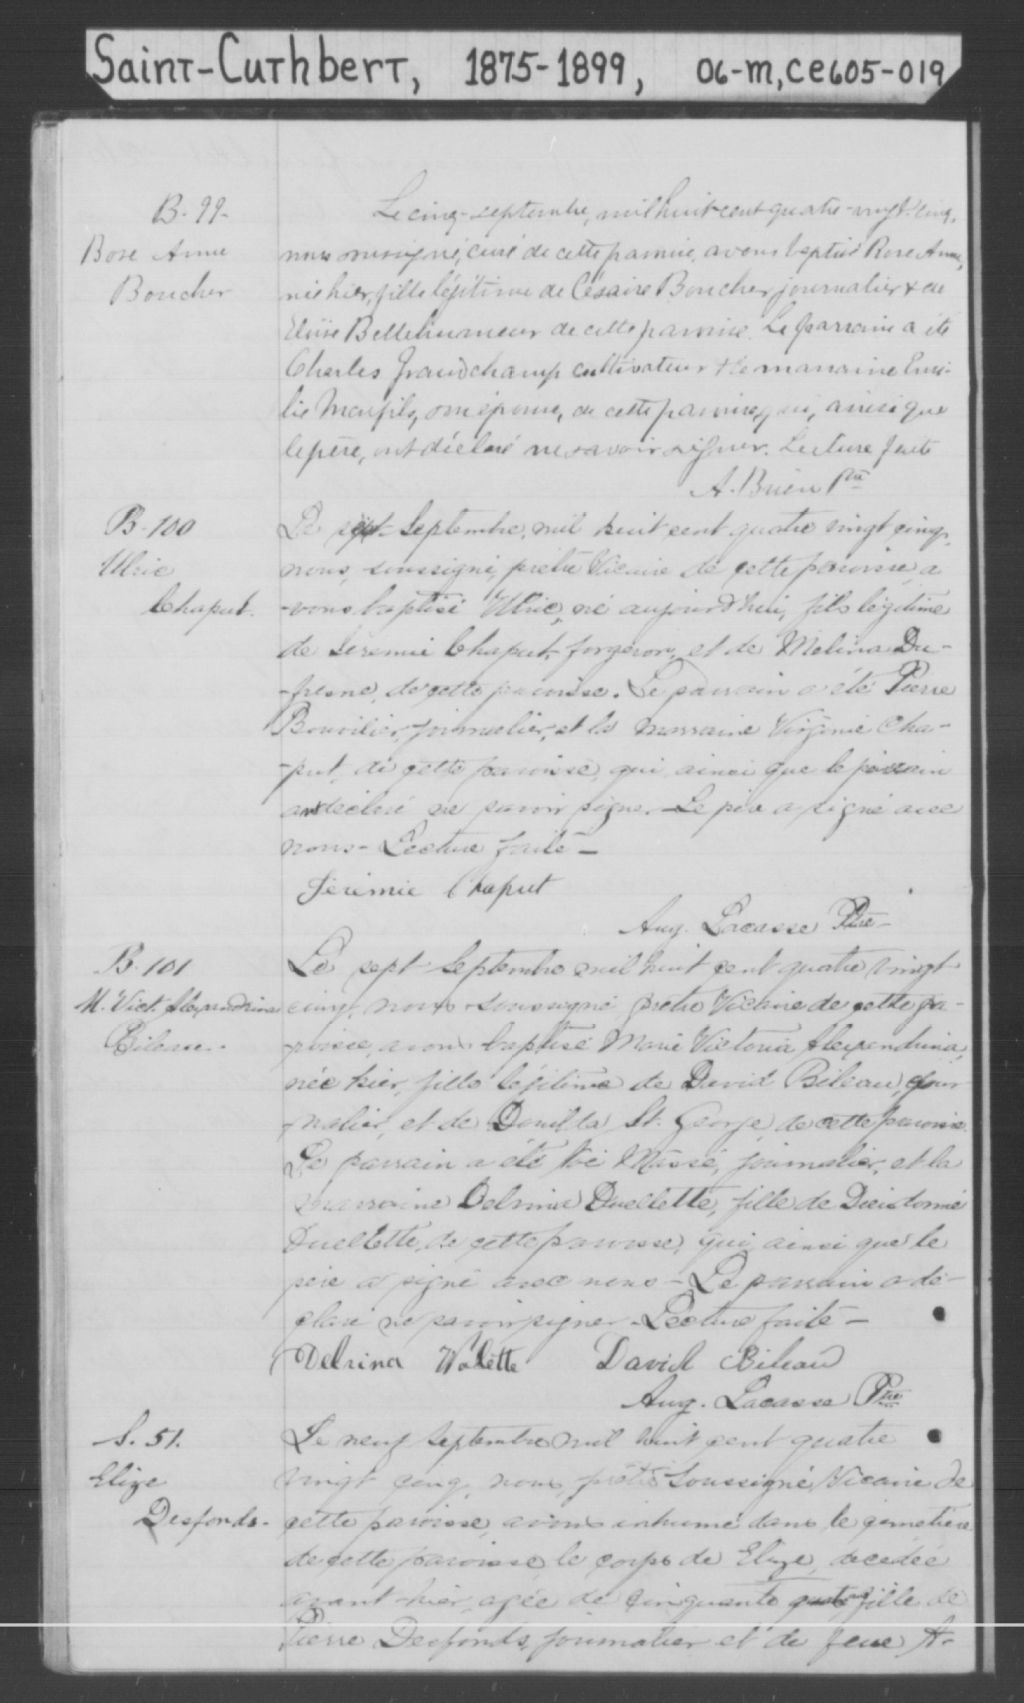 Saint-Cuthbert, 1875-1899, 06-M, CE605-019
B. 99.
Rose Anne
Boucher
Le cinq septembre, mil huit cent quatre-vingt-cinq,
nous soussigné, curé de cette paroisse, avons baptisé Rose Anne,
née hier, fille légitime de Césaire Boucher journalier & de
Elvire Bellehumeur de cette paroisse. Le parrain a été
Charles Grandchamp cultivateur & la marraine Emé-
lie son épouse, de cette paroisse, qui, ainsi que
le père, ont déclaré ne savoir signer. Lecture faite
A. Brien Ptre
B. 100
Ulric
Chaput.
Le sept Septembre, mil huit cent quatre vingt cinq,
nous, soussigné, prêtre Vicaire de cette paroisse, a
-vons baptisé Ulric, né aujourd'hui, fils légitime
de Jérémie Chaput, forgeron, et de Melina Du-
-fresne, de cette paroisse. Le parrain a été Pierre
journalier, et la marraine Virginie Cha-
-put, de cette paroisse, qui ainsi que le parrain
ont déclaré ne savoir signer - Le père a signé avec
nous - Lecture faite -
Jérémie Chaput
Aug. Lacasse Ptre
B. 101
M. Vict. Alexandrina
Bileau.
Le sept Septembre mil huit cent quatre vingt
cinq, nous soussigné prêtre Vicaire de cette pa-
-roisse, avons baptisé Marie Victoria Alexandrina,
née hier, fille légitime de David Bileau, jour
-nalier, et de St. George, de cette paroisse.
Le parrain a été Massé, journalier, et la
marraine Delrina Ouellette, fille de Dieudonné
Ouellette, de cette paroisse, qui ainsi que le
père a signé avec nous - Le parrain a dé-
claré ne savoir signer - Lecture faite -
Delrina Wolette David Bileau
Aug. Lacasse Ptre
S. 51.
Elize
Desfonds.
Le neuf Septembre mil huit cent quatre
vingt cinq, nous, prêtre Soussigné Vicaire de
cette paroisse, avons inhumé dans le cimetière
de cette paroisse le corps de Elize, décédée
avant-hier, agée de cinquante fille de
Pierre Desfonds, journalier et de feue A-